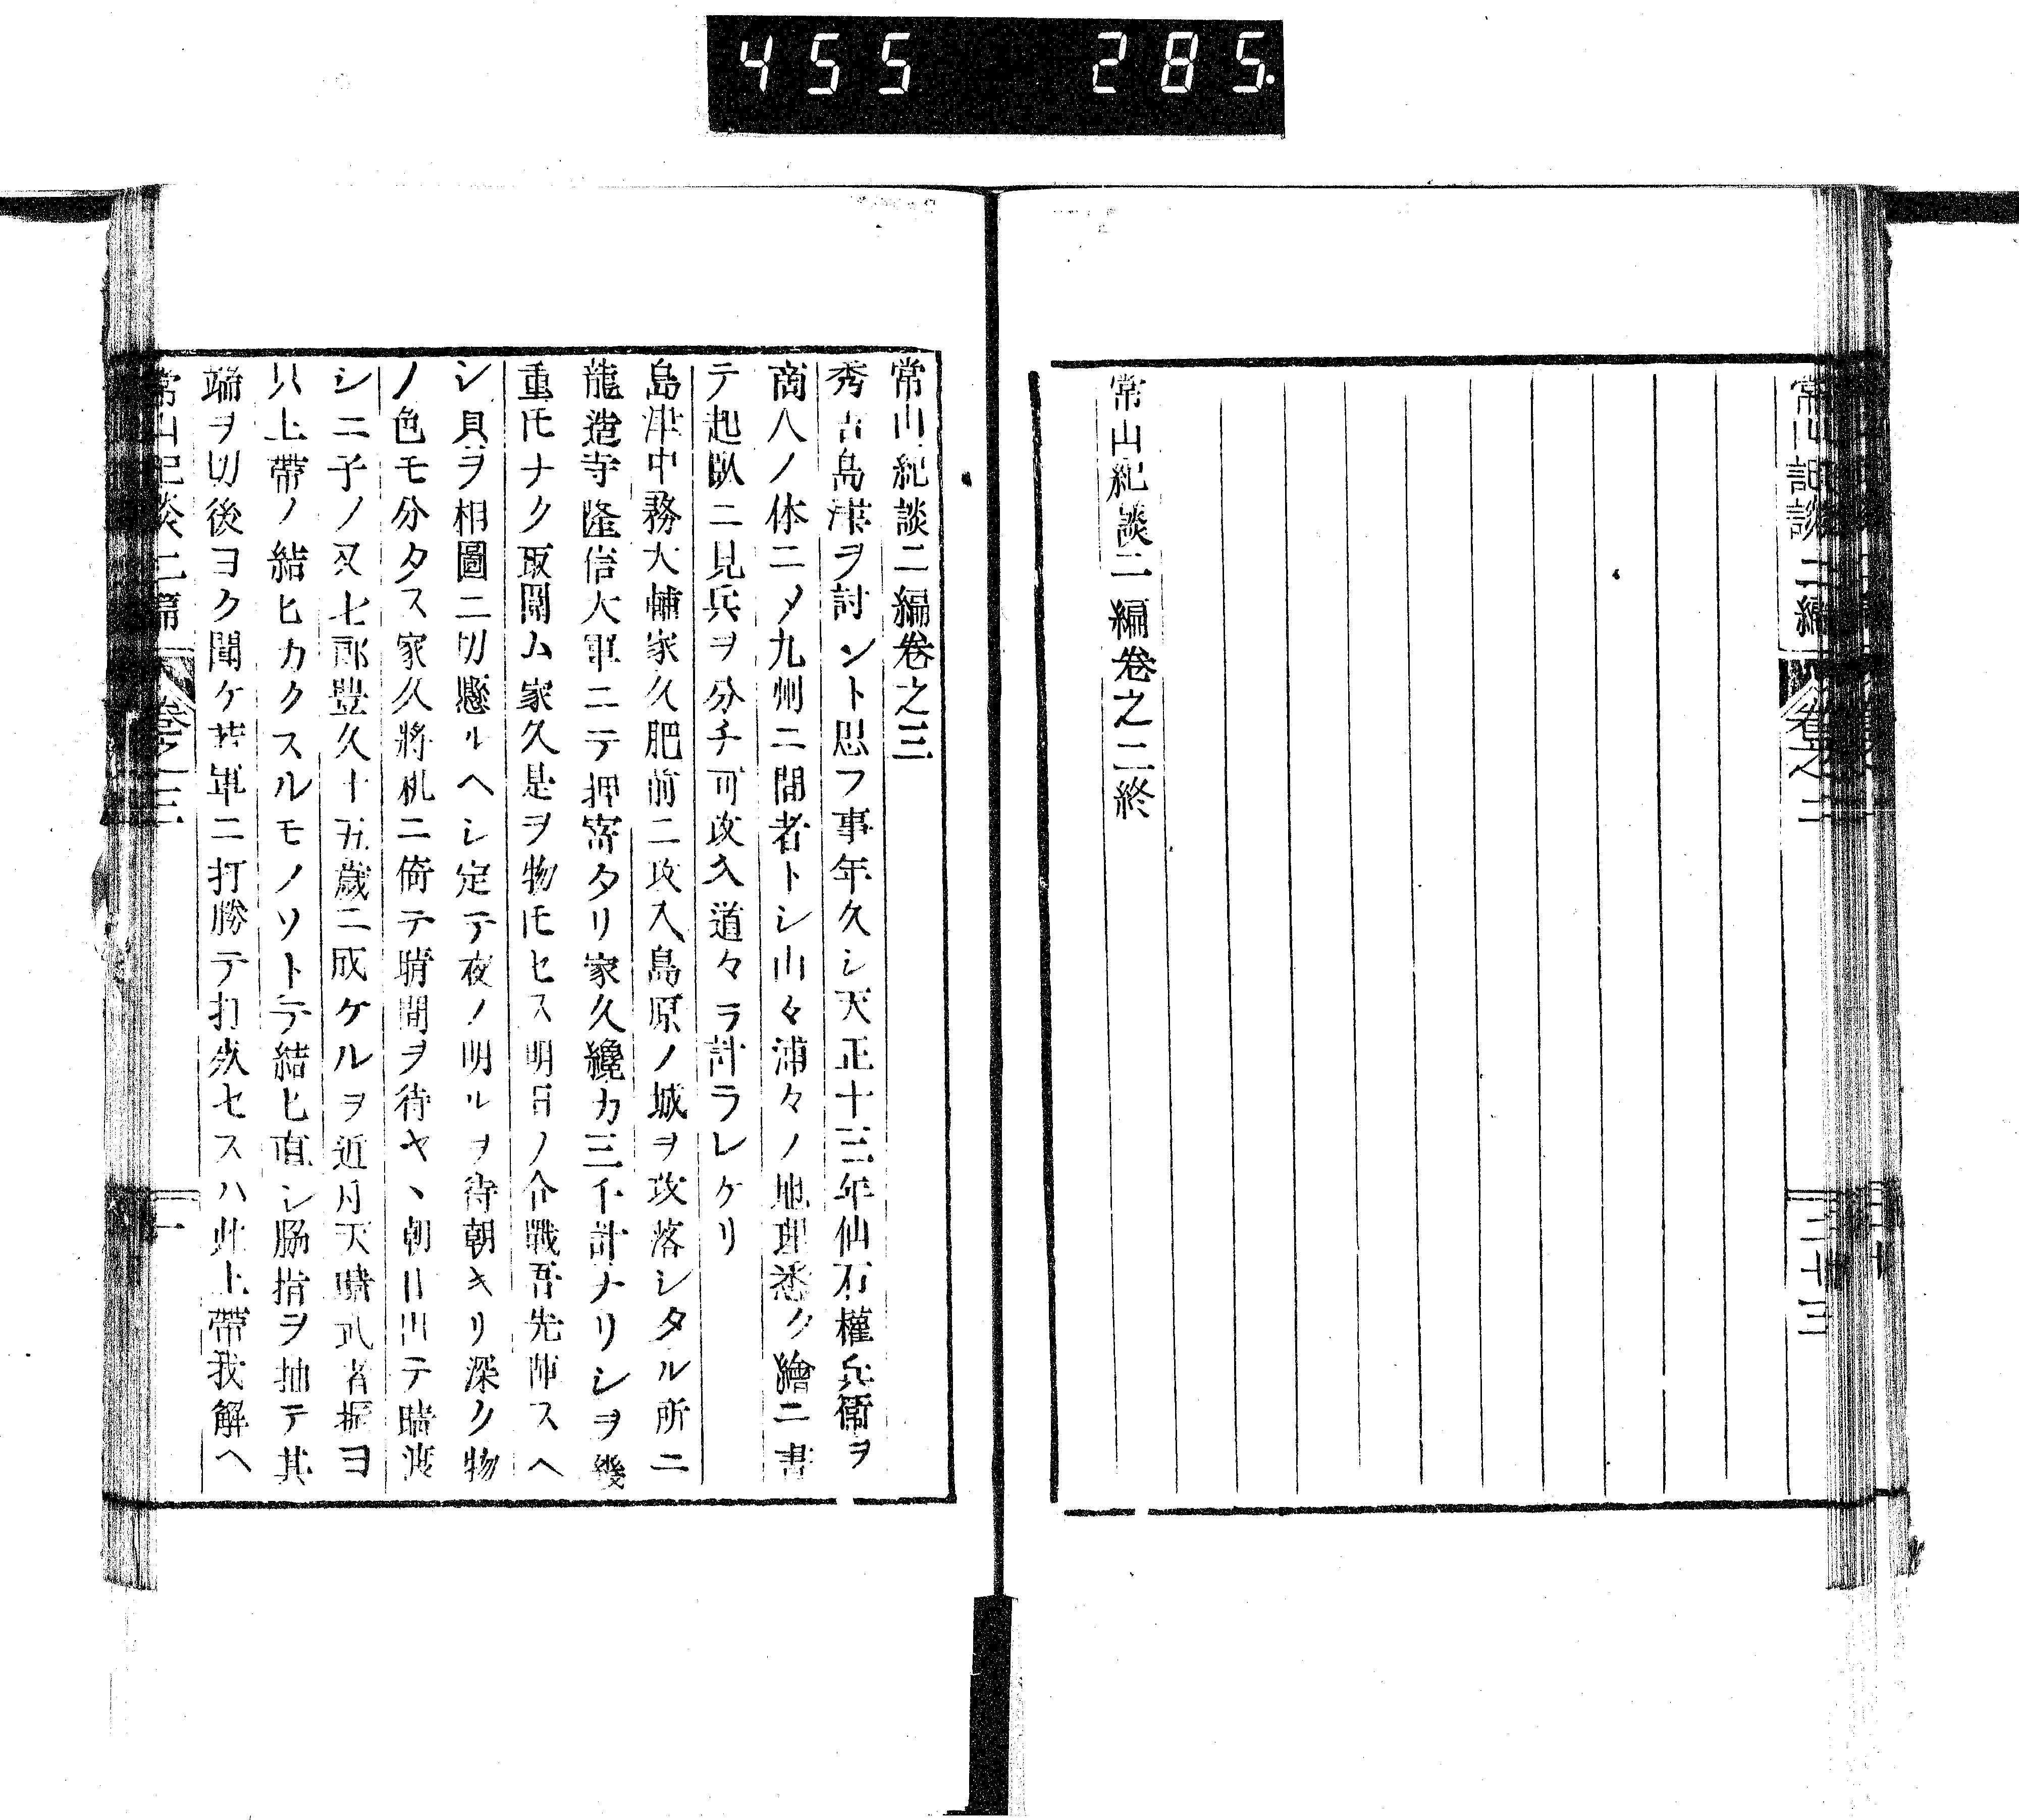 455 285.
常山記談二編 卷之二 二十三
常山紀談二編卷之二終
常山紀談二編卷之三
秀吉島津ヲ討ント思フ事年久シ天正十三年仙石權兵衛ヲ
商人ノ体ニメ九州ニ間者トシ山々浦々ノ地理悉ク繪ニ書
テ起臥ニ見兵ヲ分チ可攻入道々ヲ計ラレケリ
島津中務大輔家久肥前ニ攻入島原ノ城ヲ攻落シタル所ニ
龍造寺隆信大軍ニテ押寄タリ家久纔カ三千計ナリシヲ幾
重トモナク取圍ム家久是ヲ物トモセス明日ノ合戰吾先陣スヘ
シ貝ヲ相圖ニ切懸ルヘシ定テ夜ノ明ルヲ待朝キリ深ク物
ノ色モ分タス家久將机ニ倚テ晴間ヲ待ヤヽ朝日出テ晴渡
シニ子ノ又七郎豊久十五歳ニ成ケルヲ近付天晴武者振ヨ
只上帶ノ結ヒカクスルモノソトテ結ヒ直シ脇指ヲ抽テ其
端ヲ切後ヨク聞ケ若軍ニ打勝テ打死セスハ此上帶我解ヘ
常山紀談二篇 卷之三 一